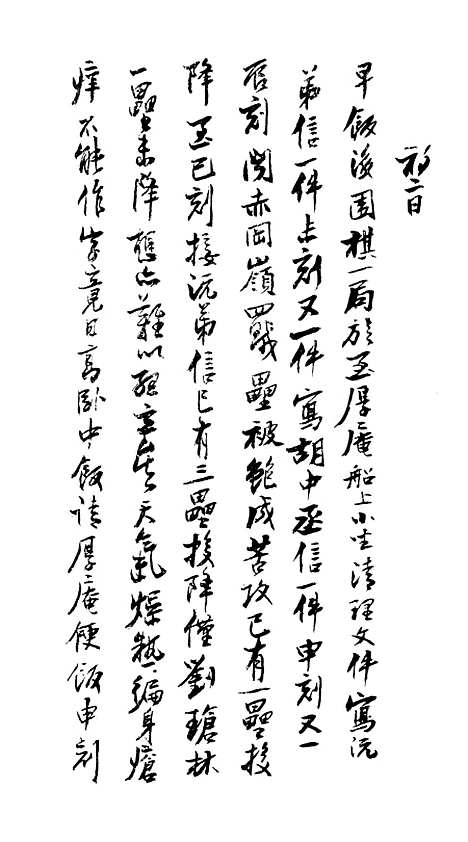 初二日
早飯後圍棋一局旋至厚庵船上小坐清理文件寫沅
弟信一件未刻又一件寫胡中丞信一件申刻又一
辰刻聞赤岡嶺四賊壘被鮑成苦攻已有一壘投
降至巳刻接沅弟信已有三壘投降僅劉瑲林
一壘未降應亦難以
天氣燥熱徧身瘡
癢不能作字竟日高臥中飯請厚庵便飯申刻